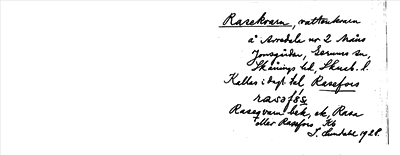 Rasekvarn, vattenkvarn
å Arvedala nr 2 Måns
Jonsgården, Gerums sn,
Skånings hd, Skarab. l.
Kallas i dagl. tal Rasefors
Rasaqvarn bek, ek, Rasa
eller Rasefors, Kb
1928.